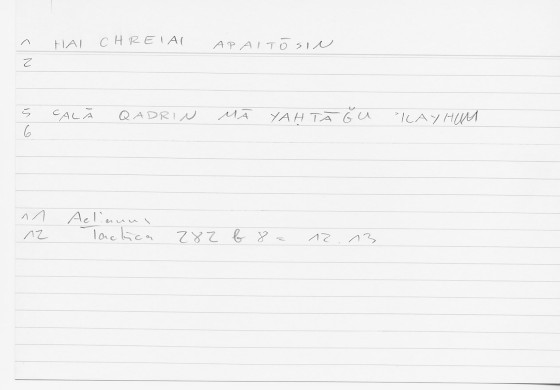 1 HAI CHREIAI APAITŌSIN
2
5 ʿALĀ QADRIN MĀ YAḤTĀĞU ʾILAYHUM
6
11 Aelianus
12 Tactica 282 b 8 - 12.13